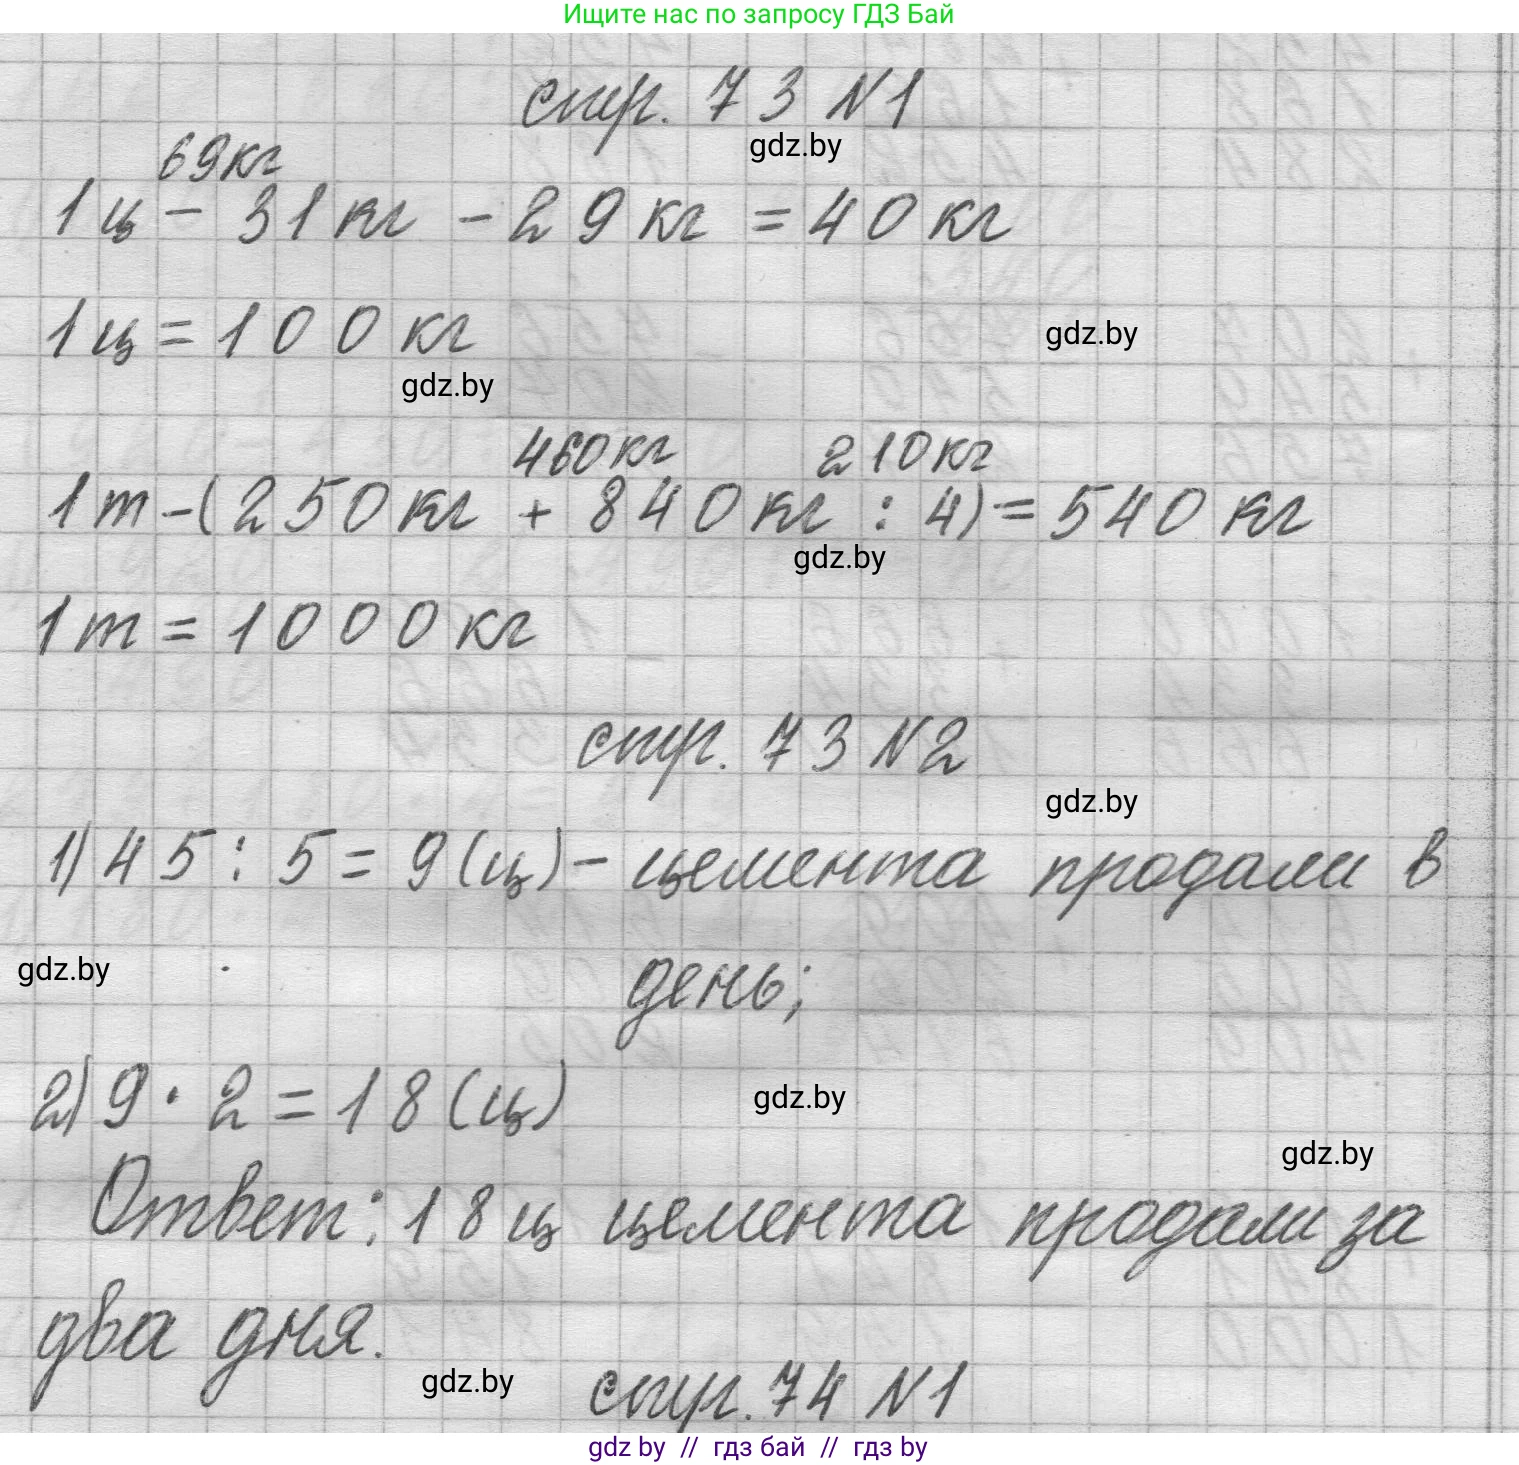 Ищите нас по запросу ГДЗ Бай
стр. 73 N1
gdz.by
69кг
1ц - 31кг - 29кг = 40кг
1ц = 100кг
gdz.by
gdz.by
460кг 210кг
1т - (250кг + 840кг : 4) = 540кг
gdz.by
1т = 1000кг
стр. 73 N2
gdz.by
1) 45 : 5 = 9(ц) - цемента продали в
gdz.by
день;
2) 9 · 2 = 18(ц)
gdz.by
gdz.by
Ответ: 18ц цемента продали за
два дня.
gdz.by
стр. 74 N1
gdz by // гдз бай // гдз by